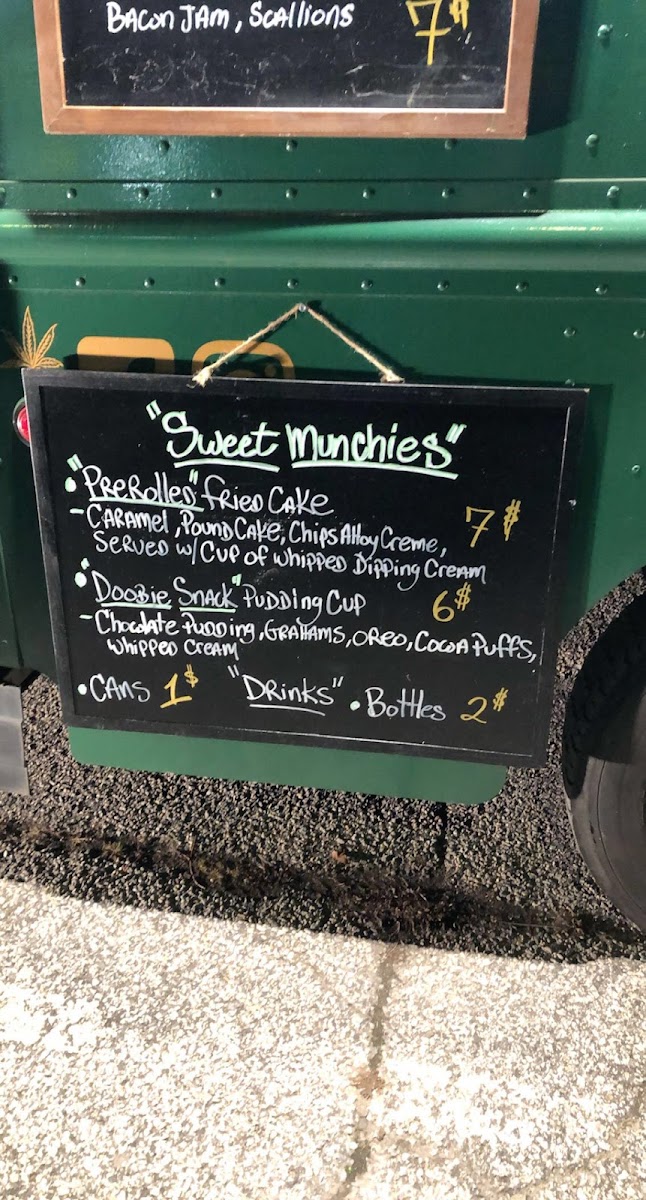 Bacon Jam, Scallions 7$
"Sweet Munchies"
• "PreRolled" Fried Cake
- Caramel, Pound Cake, Chips Ahoy Creme, 7$
Served w/ Cup of Whipped Dipping Cream
• "Doobie Snack" Pudding Cup 6$
- Chocolate Pudding, Grahams, Oreo, Cocoa Puffs,
Whipped Cream
• Cans 1$ "Drinks" • Bottles 2$